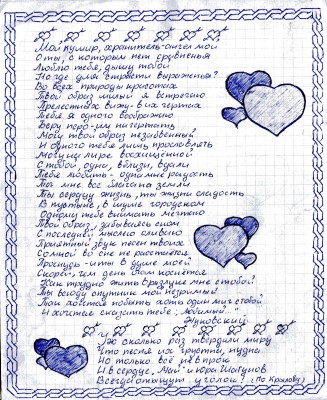 Мой кумир, хранитель-ангел мой
О ты, с которым нет сравненья
Люблю тебя, дышу тобой
Но где для страсти выраженья?
Во всех природы красотах
Твой образ милый я встречаю
Прелестных вижу - в их чертах
Тебя я одного воображаю
Беру перо - им начертать
Могу твой образ незабвенный
И одного тебя лишь прославлять
Могу на лире восхищенной
С тобой один, вблизи, вдали
Тебя любить - одна мне радость
Ты мне все блага на земли
Ты сердцу жизнь, ты жизни сладость
В пустыне, в шуме городском
Одному тебе внимать мечтаю
Твой образ, забываясь сном
С последней мыслию сливаю
Приятный звук песен твоих
Со мной во сне не расстаётся
Проснусь - и ты в душе моей
Скорей, чем день очам коснётся
Как трудно жить в разлуке мне с тобой!
Ты всюду спутник мой незримый
"
Жуковский
Уж сколько раз твердили миру
Что песня их грустна, нудна
Но только всё не впрок
И в сердце, "Май" и Юра Шатунов
Всегда отыщут уголок! (По Крылову)